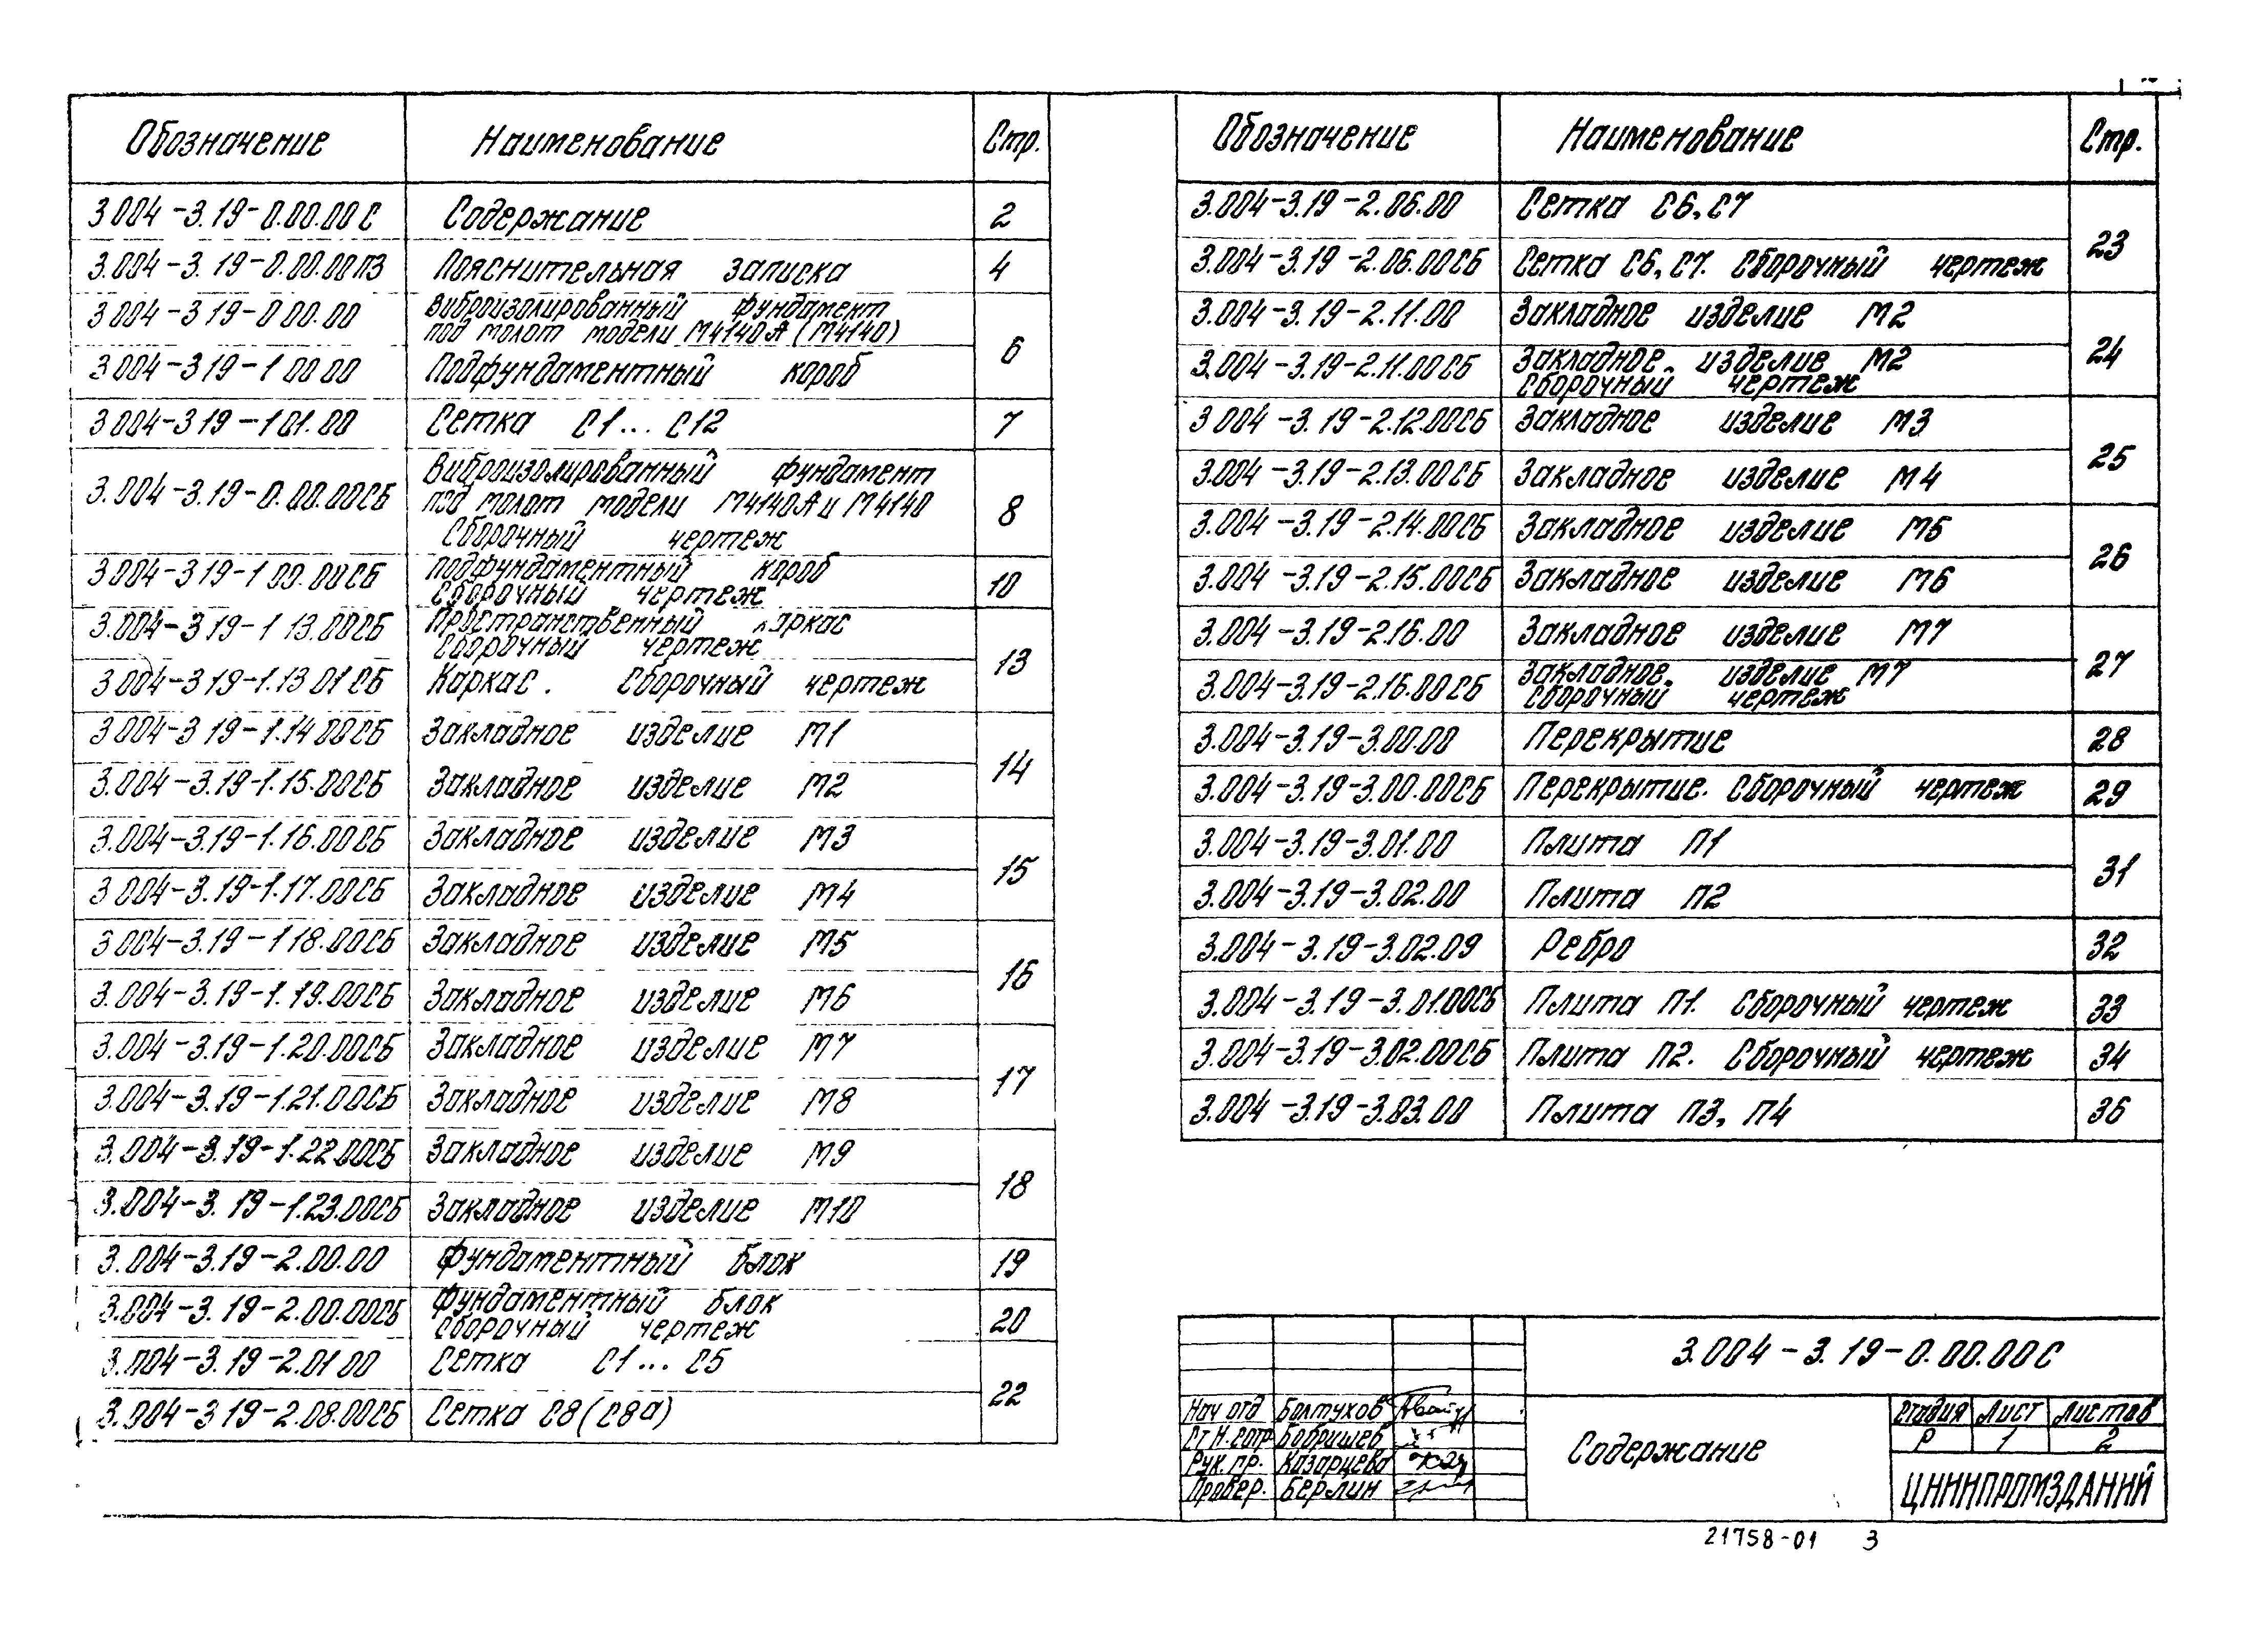 Обозначение Наименование Стр.
3.004-3.19-0.00.00 С Содержание 2
3.004-3.19-0.00.00ПЗ Пояснительная записка 4
3 004-3 19-0 00.00 Виброизолированный фундамент
под молот модели М4140А (М4140)
6
3 004-3 19-1 00 00 Подфундаментный короб
3 004-3 19-1 01.00 Сетка С1...С12 7
3.004-3.19-0.00.00СБ Виброизолированный фундамент
под молот модели М4140А и М4140
Сборочный чертеж
8
3 004-3 19-1 00.00СБ Подфундаментный короб
Сборочный чертеж
10
3.004-3 19-1 13.00СБ Пространственный каркас
Сборочный чертеж
13
3 004-3 19-1.13 01 СБ Каркас. Сборочный чертеж
3 004-3 19-1.14 00СБ Закладное изделие М1
14
3.004-3.19-1.15.00СБ Закладное изделие М2
3.004-3.19-1.16.00СБ Закладное изделие М3
15
3 004-3.19-1.17.00СБ Закладное изделие М4
3 004-3.19-1 18.00СБ Закладное изделие М5
16
3.004-3.19-1.19.00СБ Закладное изделие М6
3.004-3.19-1.20.00СБ Закладное изделие М7
17
3.004-3.19-1.21.00СБ Закладное изделие М8
3.004-3.19-1.22.00СБ Закладное изделие М9
18
3.004-3.19-1.23.00СБ Закладное изделие М10
3.004-3.19-2.00.00 Фундаментный блок 19
3.004-3.19-2.00.00СБ Фундаментный блок
Сборочный чертеж
20
3.004-3.19-2.01 00 Сетка С1...С5
22
3.004-3 19-2.08.00СБ Сетка С8 (С8а)
Обозначение Наименование Стр.
3.004-3.19-2.06.00 Сетка С6, С7
23
3.004-3.19-2.06.00СБ Сетка С6, С7. Сборочный чертеж
3.004-3.19-2.11.00 Закладное изделие М2
24
3.004-3.19-2.11.00СБ Закладное изделие М2
Сборочный чертеж
3 004-3.19-2.12.00СБ Закладное изделие М3
25
3.004-3.19-2.13.00СБ Закладное изделие М4
3.004-3.19-2.14.00СБ Закладное изделие М5
26
3.004-3.19-2.15.00СБ Закладное изделие М6
3.004-3.19-2.16.00 Закладное изделие М7
27
3.004-3.19-2.16.00СБ Закладное изделие М7
Сборочный чертеж
3.004-3.19-3.00.00 Перекрытие 28
3.004-3.19-3.00.00СБ Перекрытие. Сборочный чертеж 29
3.004-3.19-3.01.00 Плита П1
31
3.004-3.19-3.02.00 Плита П2
3.004-3.19-3.02.09 Ребро 32
3.004-3.19-3.01.00СБ Плита П1. Сборочный чертеж 33
3.004-3.19-3.02.00СБ Плита П2. Сборочный чертеж 34
3.004-3.19-3.03.00 Плита П3, П4 36
3.004-3.19-0.00.00С
Нач отд Болтухов
Ст Н.сотр Бобришев
Рук. пр. Казарцева
Провер. Берлин
Содержание
Стадия Лист Листов
Р 1 2
ЦНИИПРОМЗДАНИЙ
21758-01 3